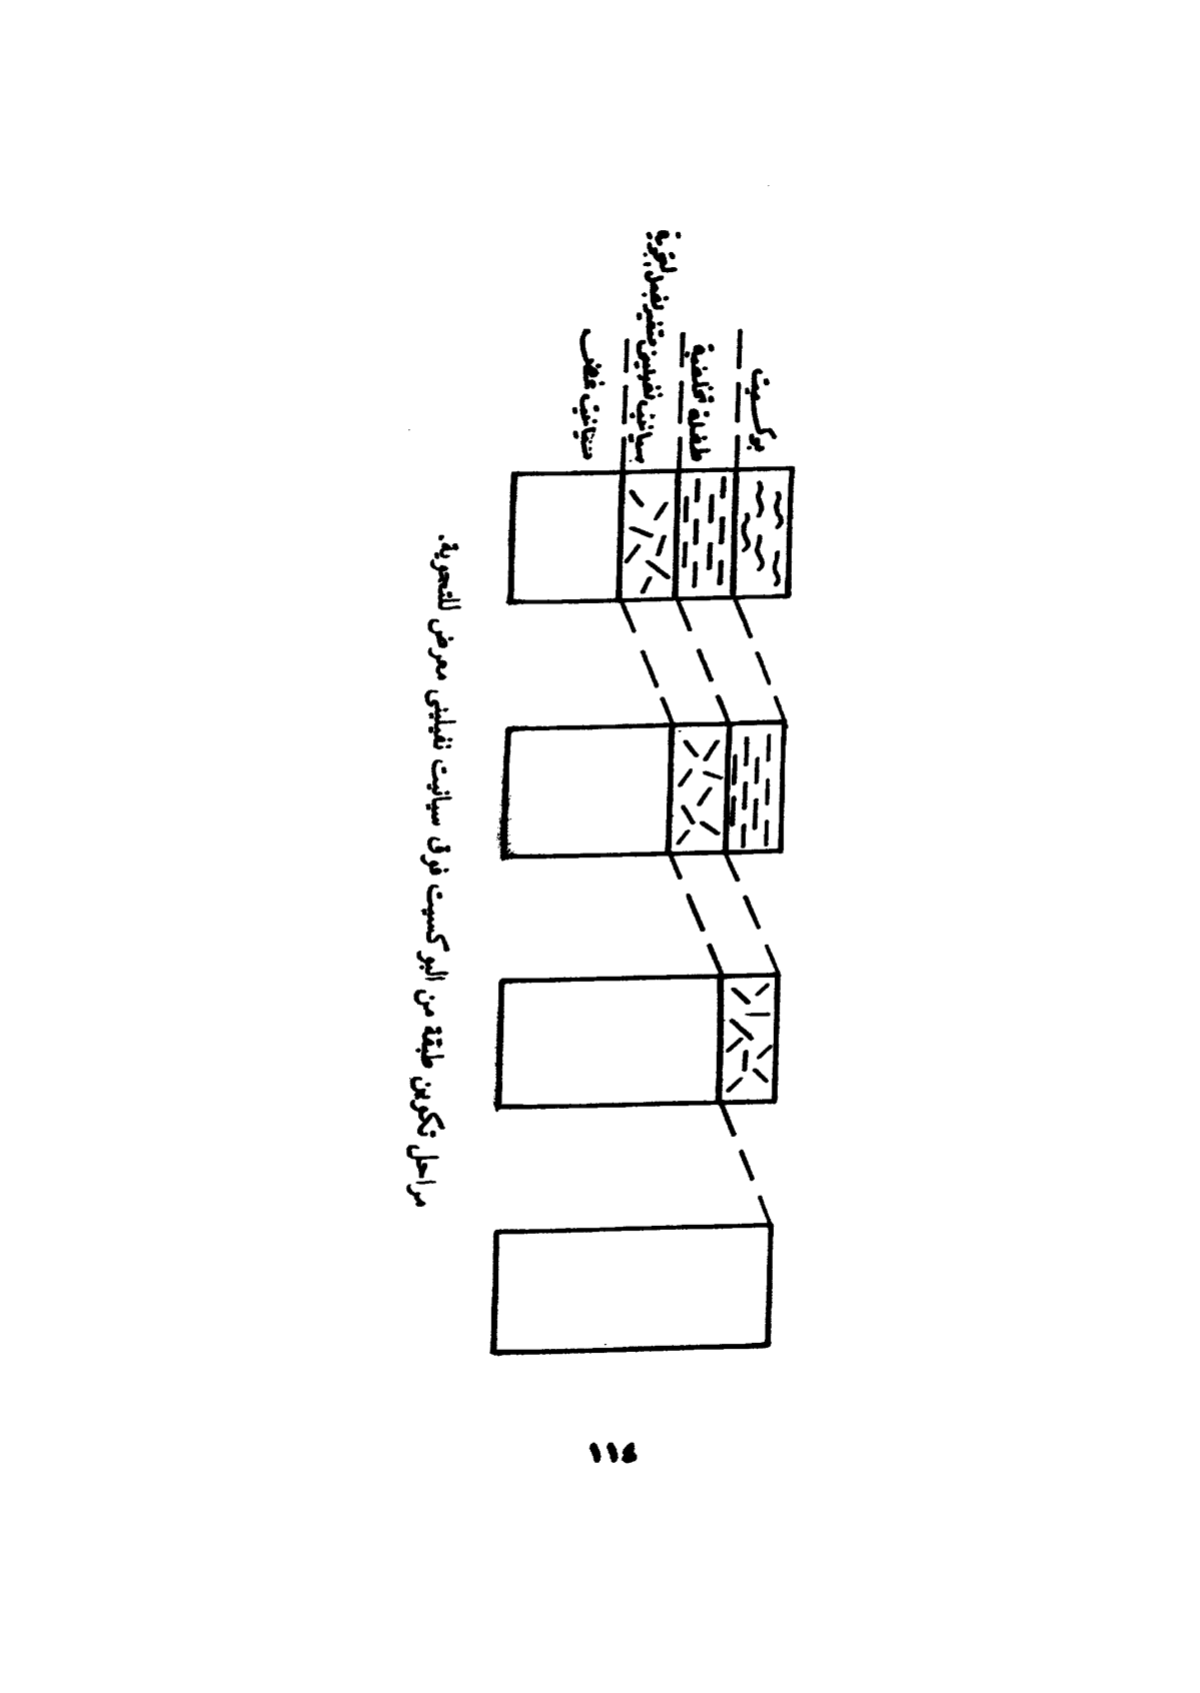 بوكسيت
طفلة متخلفية
سيانيت نفيليني متغير بفعل التجوية
سيانيت غض
مراحل تكوين طبقة من البوكسيت فوق سيانيت نفيليني معرض للتجوية.
١١٤